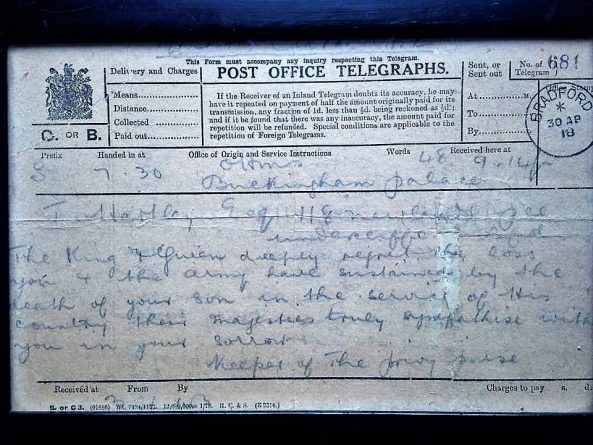 This Form must accompany any inquiry respecting this Telegram.
POST OFFICE TELEGRAPHS.
C. OR B.
Delivery and Charges
Means
Distance
Collected
Paid out
If the Receiver of an Inland Telegram doubts its accuracy, he may
have it repeated on payment of half the amount originally paid for its
transmission, any fraction of 1d. less than ½d. being reckoned as ½d.;
and if it be found that there was any inaccuracy, the amount paid for
repetition will be refunded. Special conditions are applicable to the
repetition of Foreign Telegrams.
Sent, or
Sent out
At M.
To
By
No. of
Telegram
681
BRADFORD
30 AP
18
Prefix Handed in at Office of Origin and Service Instructions Words Received here at
S 7.30 OHMS 48 9.14
Buckingham palace
T. Hartley Esq
undercliffe
The King & Queen deeply regret the loss
you & the army have sustained by the
death of your son in the service of His
country their majesties truly sympathise with
you in your sorrow
Keeper of The privy purse
Received at From By Charges to pay s. d.
B. or C 3.
R. C. & S.